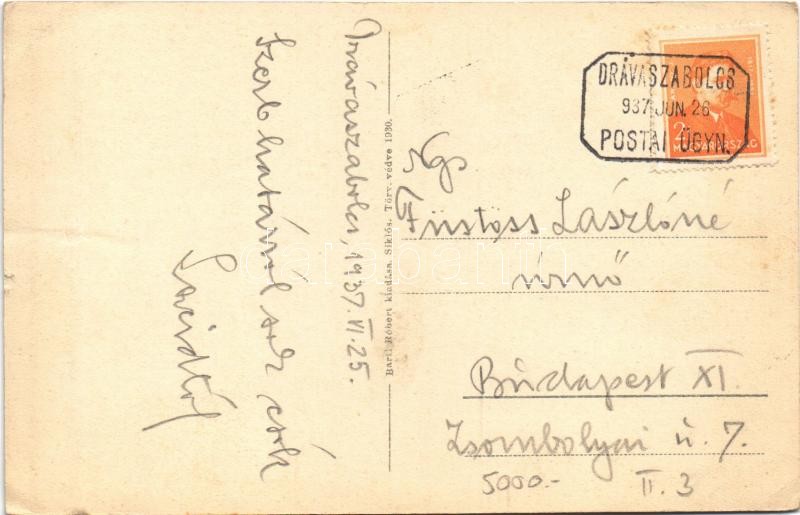 Drávaszabolcs, 1937. VI. 25.
Szerb határról sok csók
Lacidtól
Baril Róbert kiadása. Siklós. Törv. védve 1930.
DRÁVASZABOLCS
937 JUN. 26
POSTAI ÜGYN.
2
MAGYARORSZÁG
Ngs
Füstöss Lászlóné
úrnő
Budapest XI.
Zsombolyai ú. 7.
II. 3
5000.-
darabanth